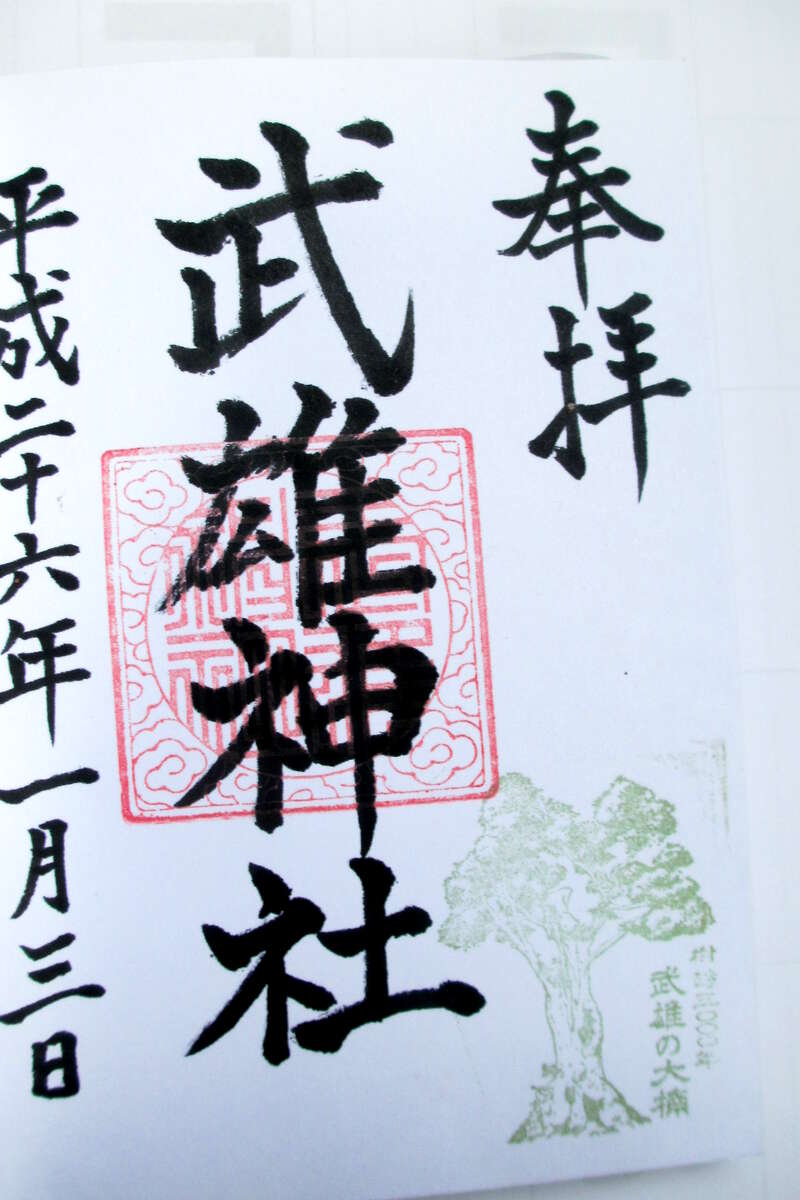 奉拝
武雄神社
平成二十六年一月三日
樹齢三〇〇〇年
武雄の大楠